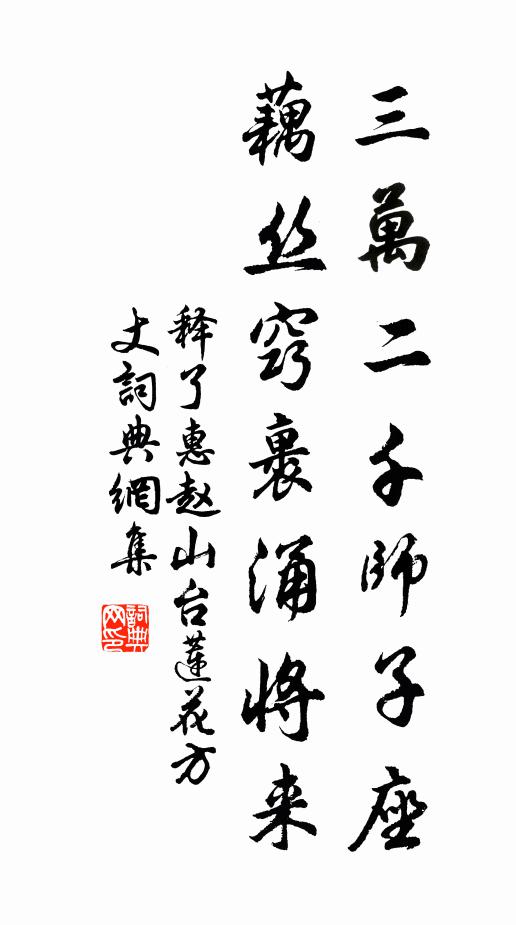 三萬二千師子座
藕丝窍裹涌將来
释了惠赵山台蓮花方
丈詞典網集
詞典
网印